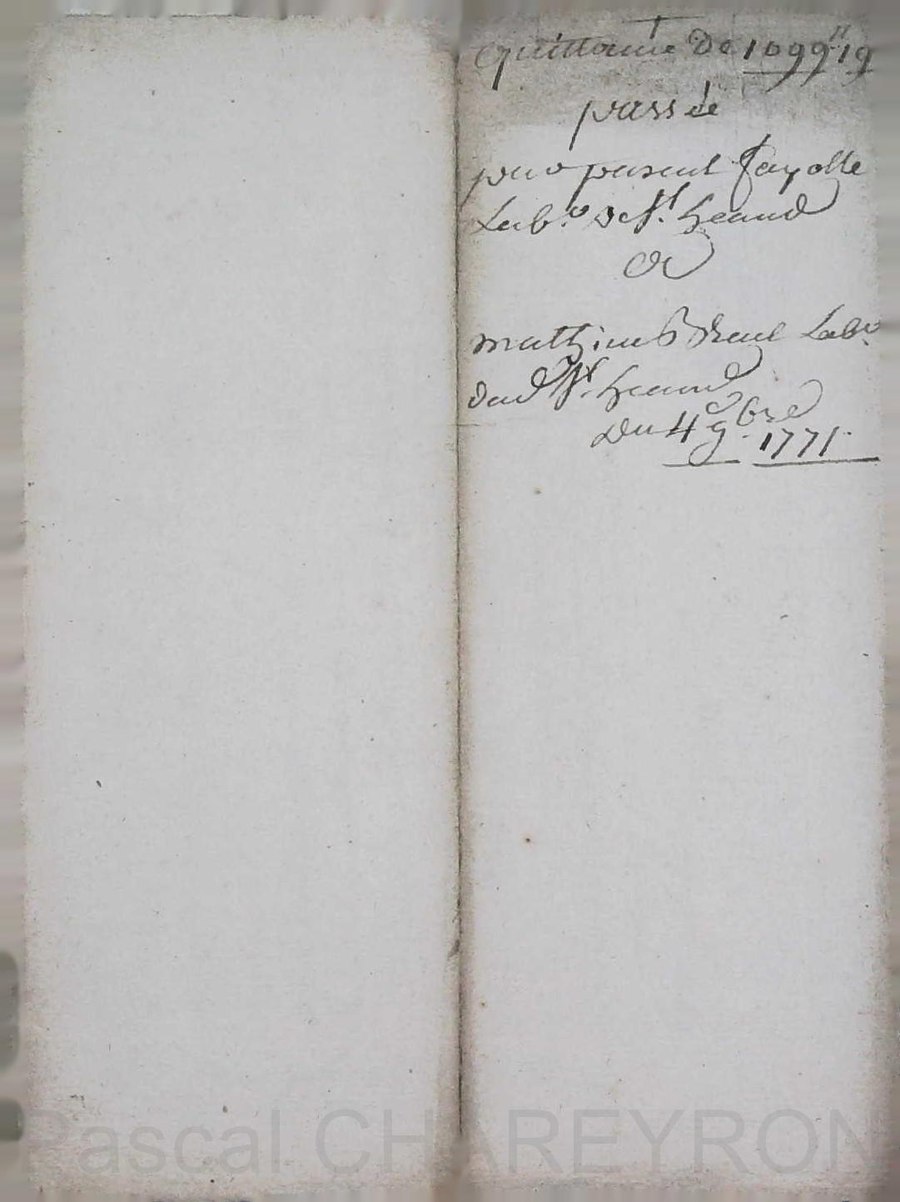 Quittance De 1099ᴸᵗ 19
passée
par Fayolle
Labr. De St. heand
a
mathieu Labr.
dud St. heand
Du 4e 9bre 1771.
Pascal CHAREYRON